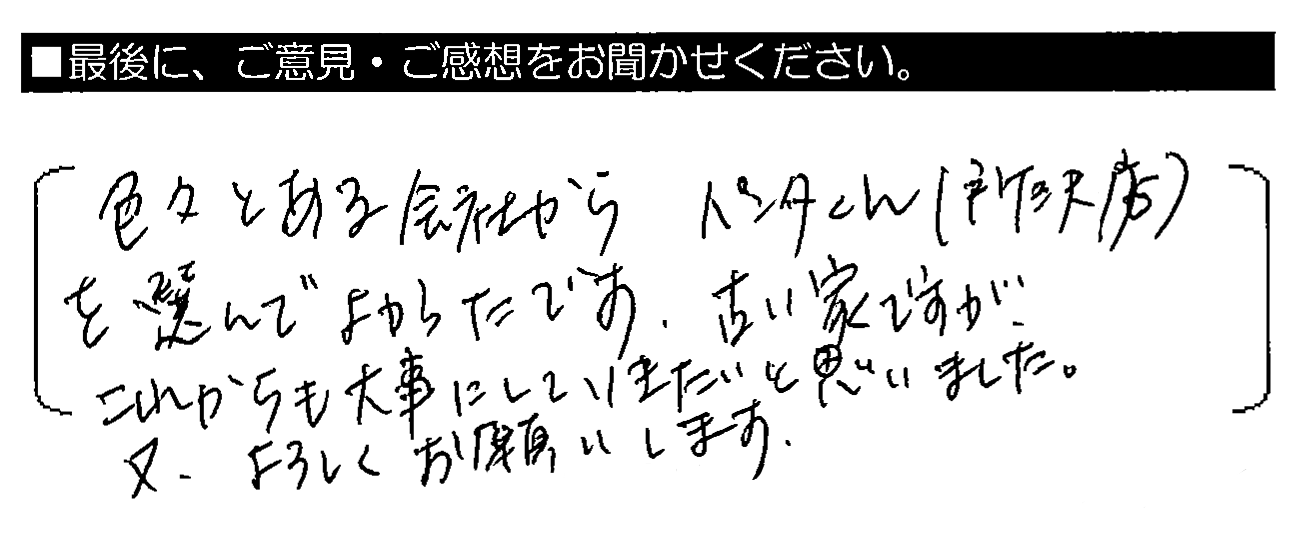 ■最後に、ご意見・ご感想をお聞かせください。
色々とある会社から ペンタくん(所沢店)
を選んでよかったです。古い家ですが、
これからも大事にしていきたいと思いました。
又、よろしくお願いします。